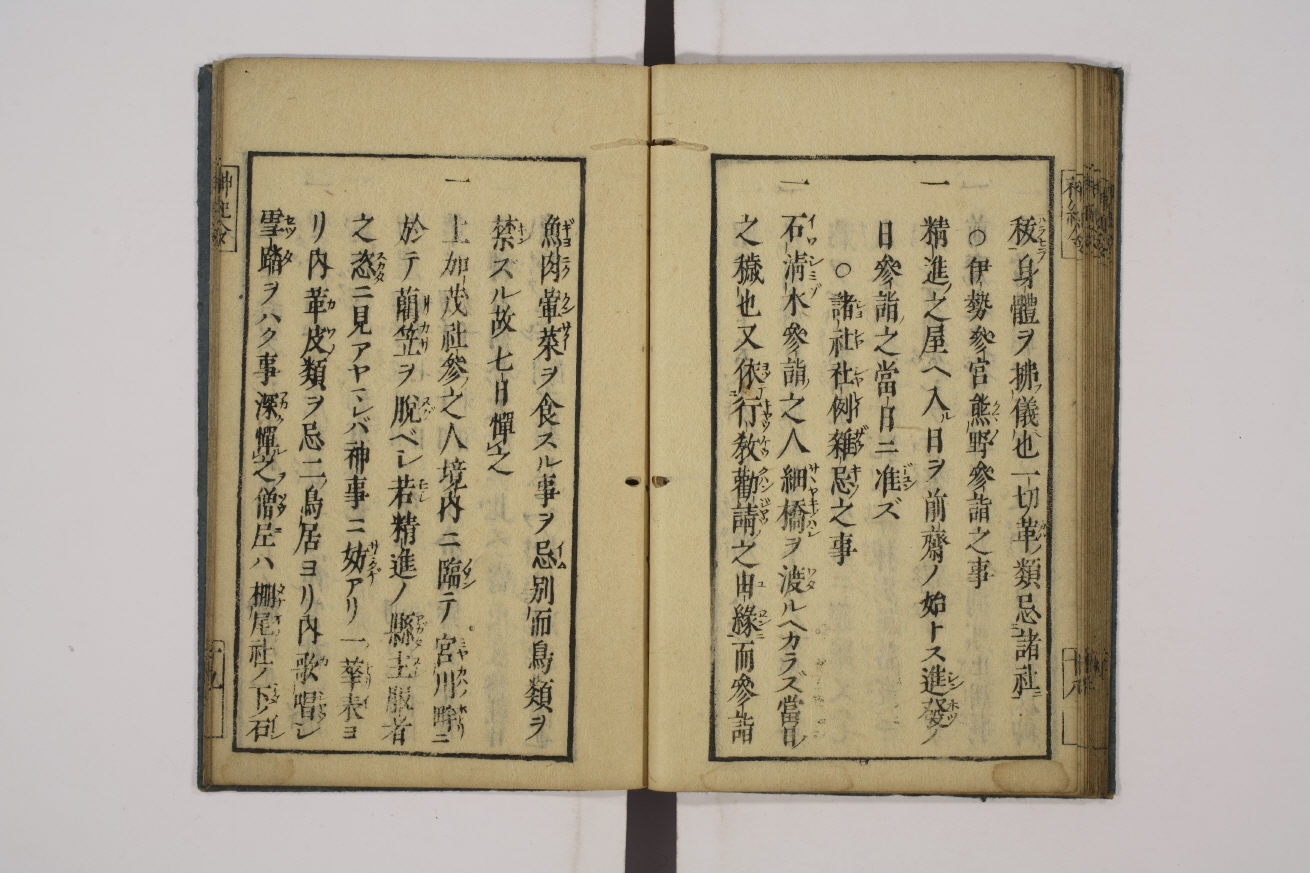 祓身體ヲ拂儀也一切革ノ類忌諸社ニ
○伊勢參宮熊野參詣之事
一 精進ノ之屋ヘ入ル日ヲ前齋ノ始トス進發ノ
日參詣ノ之當日ニ准ズ
○諸社社例雜忌之事
一 石淸水參詣ノ之人細橋ヲ渡ルヘカラズ當日ノ
之穢也又依行敎勸請之由緣而參詣
魚肉葷菜ヲ食スル事ヲ忌別而鳥類ヲ
禁スル故七日憚之
一 上加茂社參ノ之人境內ニ臨テ宮川ノ畔ニ
於テ藺笠ヲ脫ベシ若精進ノ縣主服者
之恣ニ見アヤマレバ神事ニ妨アリ一ノ華表ヨ
リ內革皮類ヲ忌二ノ鳥居ヨリ內歌唱シ
雪踏ヲハク事深憚之僧尼ハ棚尾社ノ下ノ石